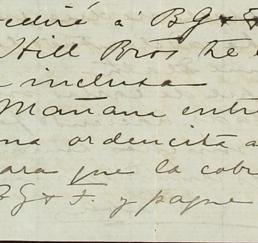 ediré á B G & F
Hill Bros he
inclusa
Mañana entr
na ordencita a
ara que la cobr
B G & F. y pague